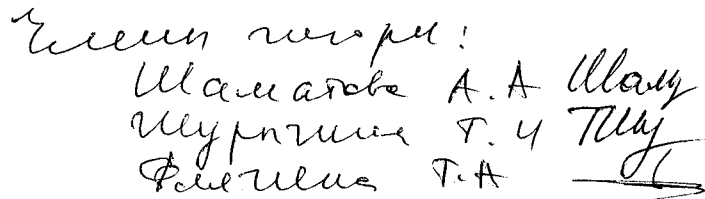 Члены жюри:
Шаматова А.А
Шурыгина Т.И
Фляжина Т.А